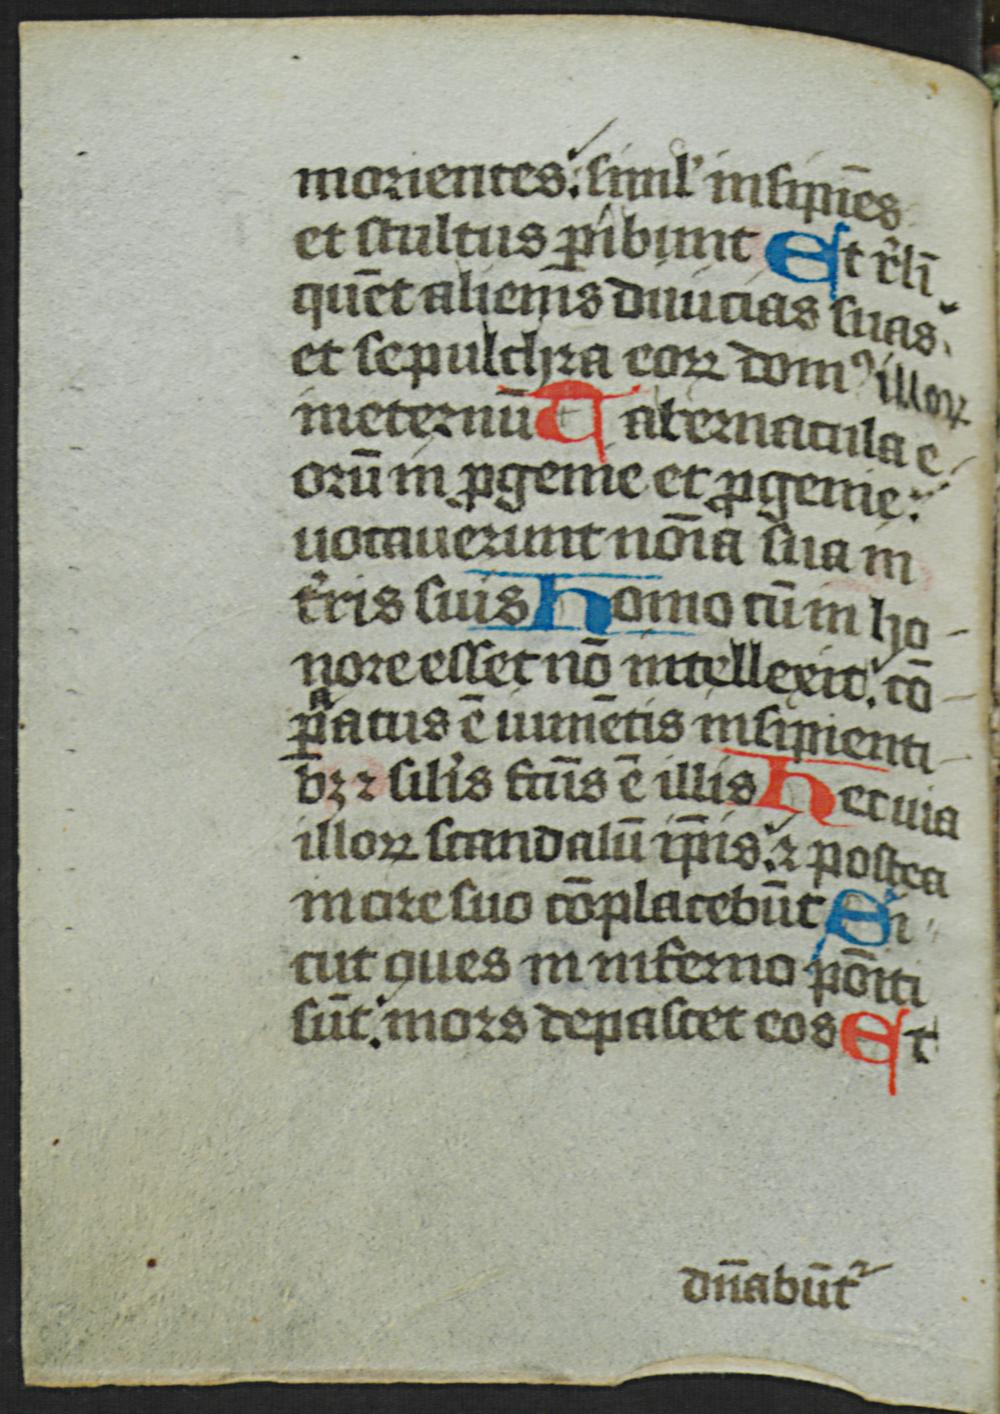 morientes: simil' insipiēs
et stultus ꝑibunt Et r̓li
quēt alienis diuicias suas.
et sepulchra eoꝝ domꝰ illoꝝ
ineternū Tabernacula e
orū in ꝓgenie et ꝓgenie:
uocauerunt nōīa sua in
t̓ris suis Homo cū in ho-
nore esset nō intellexit: cō-
ꝑatus ē iumētis insipienti-
bꝫ ⁊ silīs fcūs ē illis Hec uia
illoꝝ scandalū ip̄is: ⁊ postea
in ore suo cōplacebūt Si
cut oues in inferno pōīti
sūt: mors depascet eos Et
dn̄abūt᷑